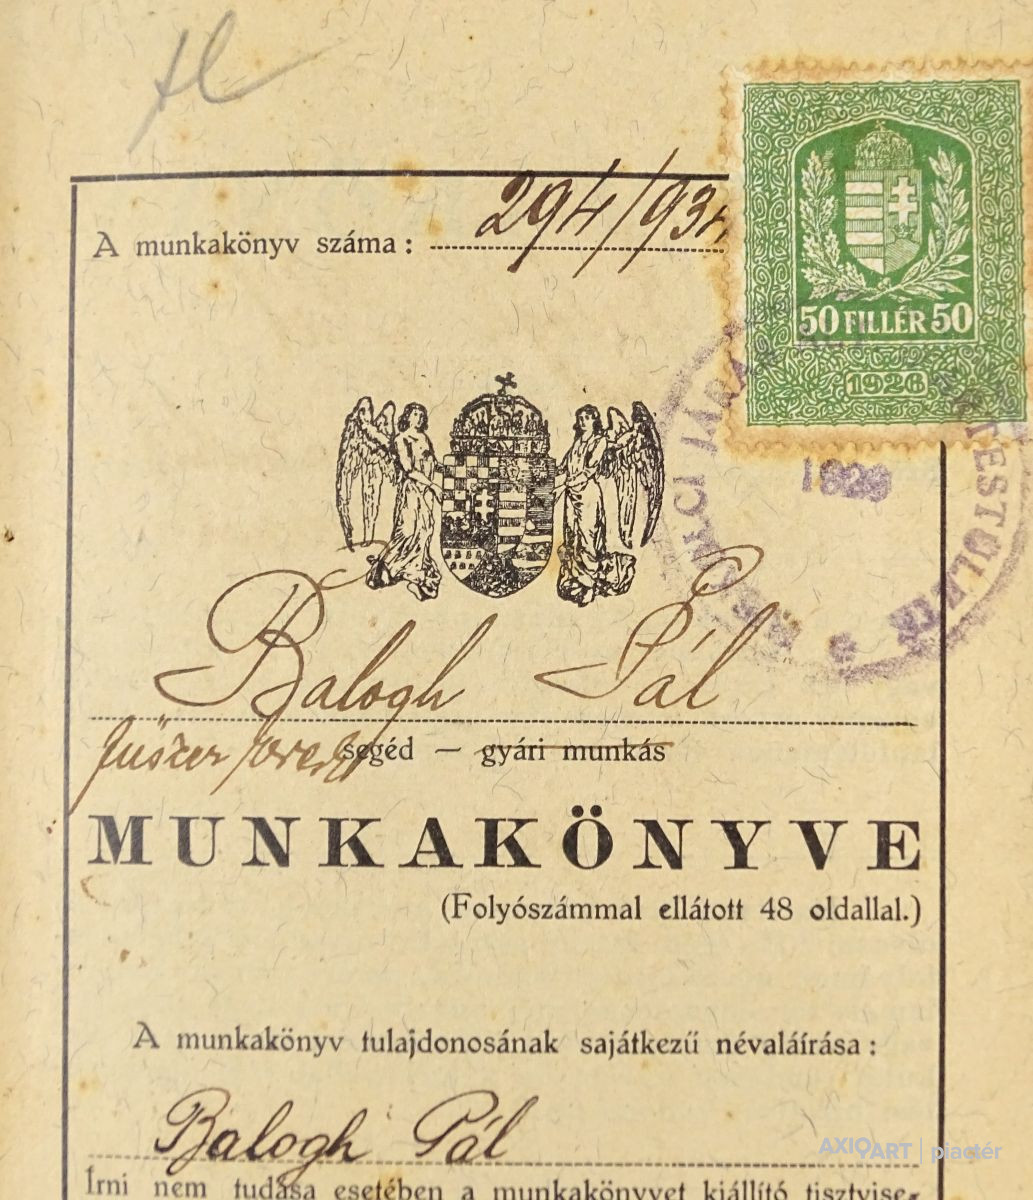 A munkakönyv száma: 294/934
50 FILLÉR 50
1926
TESTÜLET
Balogh Pál
fűszer segéd — gyári munkás
MUNKAKÖNYVE
(Folyószámmal ellátott 48 oldallal.)
A munkakönyv tulajdonosának sajátkezű névaláírása:
Balogh Pál
Írni nem tudása esetében a munkakönyvet kiállító tisztvise-
AXIOART | piactér